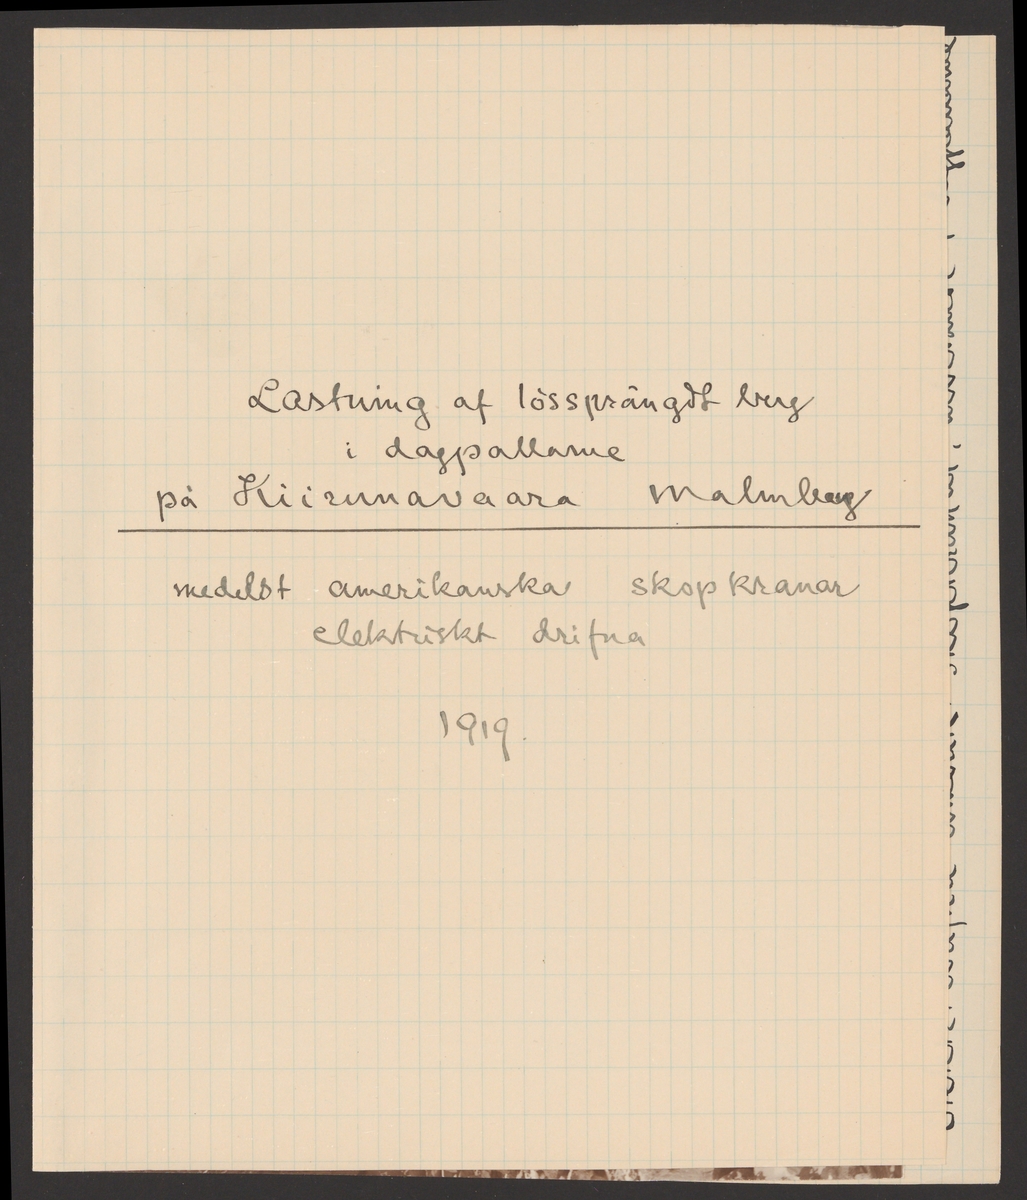 Lastning af lössprängdt berg
i dagpallarne
på Kiirunavaara Malmberg
medelst amerikanska skopkranar
elektriskt drifna
1919.